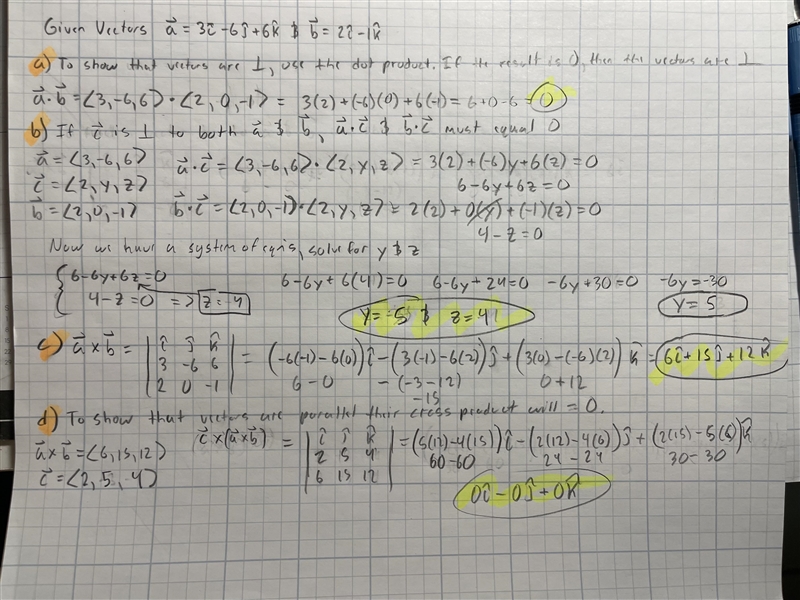 Given Vectors a⃗ = 3î - 6ĵ + 6k̂ & b⃗ = 2î - 1k̂
a) To show that vectors are ⊥, use the dot product. If the result is 0, then the vectors are ⊥
a⃗·b⃗ = ⟨3,-6,6⟩·⟨2,0,-1⟩ = 3(2)+(-6)(0)+6(-1) = 6+0-6 = 0
b) If c⃗ is ⊥ to both a⃗ & b⃗, a⃗·c⃗ & b⃗·c⃗ must equal 0
a⃗ = ⟨3,-6,6⟩ a⃗·c⃗ = ⟨3,-6,6⟩·⟨2,y,z⟩ = 3(2)+(-6)y+6(z) = 0
c⃗ = ⟨2,y,z⟩ 6-6y+6z=0
b⃗ = ⟨2,0,-1⟩ b⃗·c⃗ = ⟨2,0,-1⟩·⟨2,y,z⟩ = 2(2)+0(y)+(-1)(z)=0
4-z=0
Now we have a system of eqns, solve for y & z
6-6y+6z=0 6-6y+6(4)=0 6-6y+24=0 -6y+30=0 -6y=-30
4-z=0 => z=4 y=5
y=5 & z=4
c) a⃗×b⃗ = | î ĵ k̂ | = (-6(-1)-6(0))î - (3(-1)-6(2))ĵ + (3(0)-(-6)(2))k̂ = 6î+15ĵ+12k̂
3 -6 6 6-0 -(-3-12) 0+12
2 0 -1 -15
d) To show that vectors are parallel their cross product will = 0.
a⃗×b⃗ = ⟨6,15,12⟩ c⃗×(a⃗×b⃗) = | î ĵ k̂ | = (5(12)-4(15))î - (2(12)-4(6))ĵ + (2(15)-5(6))k̂
2 5 4 60-60 24-24 30-30
c⃗ = ⟨2,5,-4⟩ 6 15 12
0î-0ĵ+0k̂